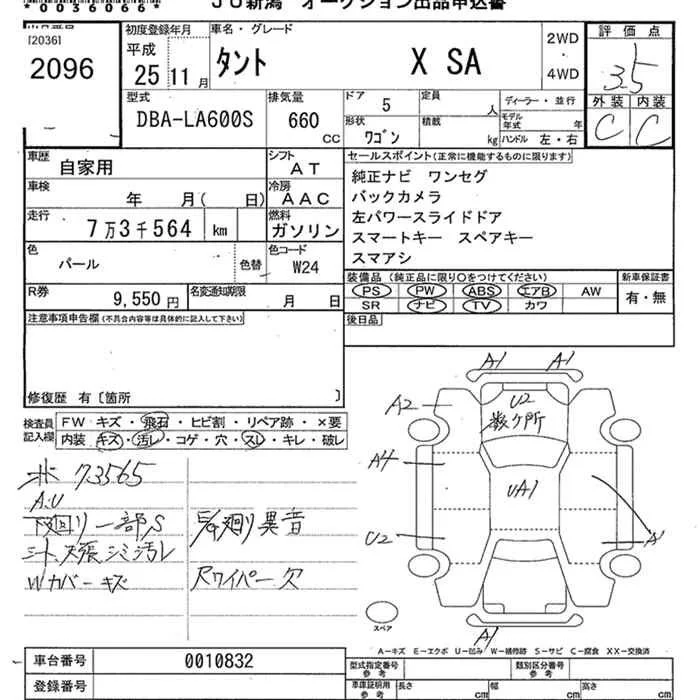 *0036066*
JU新潟 オークション出品申込書
[2036]
2096
初度登録年月
平成
25 11月
車名・グレード
タント X SA
2WD
・
4WD
評価点
3.5
外装 内装
C C
型式
DBA-LA600S
排気量
660
CC
ドア 5
形状
ワゴン
定員 人
積載 kg
ディーラー・並行
モデル年式 年
ハンドル 左・右
車歴
自家用
シフト
AT
車検
年 月( 日)
冷房
AAC
走行
7万3千564 km
燃料
ガソリン
色
パール
色替
色コード
W24
R券
9,550円
名変通知期限
月 日
セールスポイント(正常に機能するものに限ります)
純正ナビ ワンセグ
バックカメラ
左パワースライドドア
スマートキー スペアキー
スマアシ
装備品(純正品に限り○をつけてください)
PS PW ABS エアB AW
SR ナビ TV カワ
新車保証書
有・無
後日品
注意事項申告欄(不具合内容等は具体的に記入して下さい)
修復歴 有〔箇所 〕
検査員
記入欄
FW キズ・飛石・ヒビ割・リペア跡・×要
内装・キズ・汚レ・コゲ・穴・スレ・キレ・破レ
73565
A.U
下廻リ一部S
シート、天張シミ汚レ
Wカバーキズ
異音
Rワイパー欠
A1 A1
A2
U2
数ケ所
A4
UA1
U2
A1
A1
スペア
A-キズ E-エクボ U-凹み W-補修跡 S-サビ C-腐食 XX-交換済
車台番号
0010832
登録番号
型式指定番号
参考
類別区分番号
参考
車庫証明用
参考
長さ cm
幅 cm
高さ cm